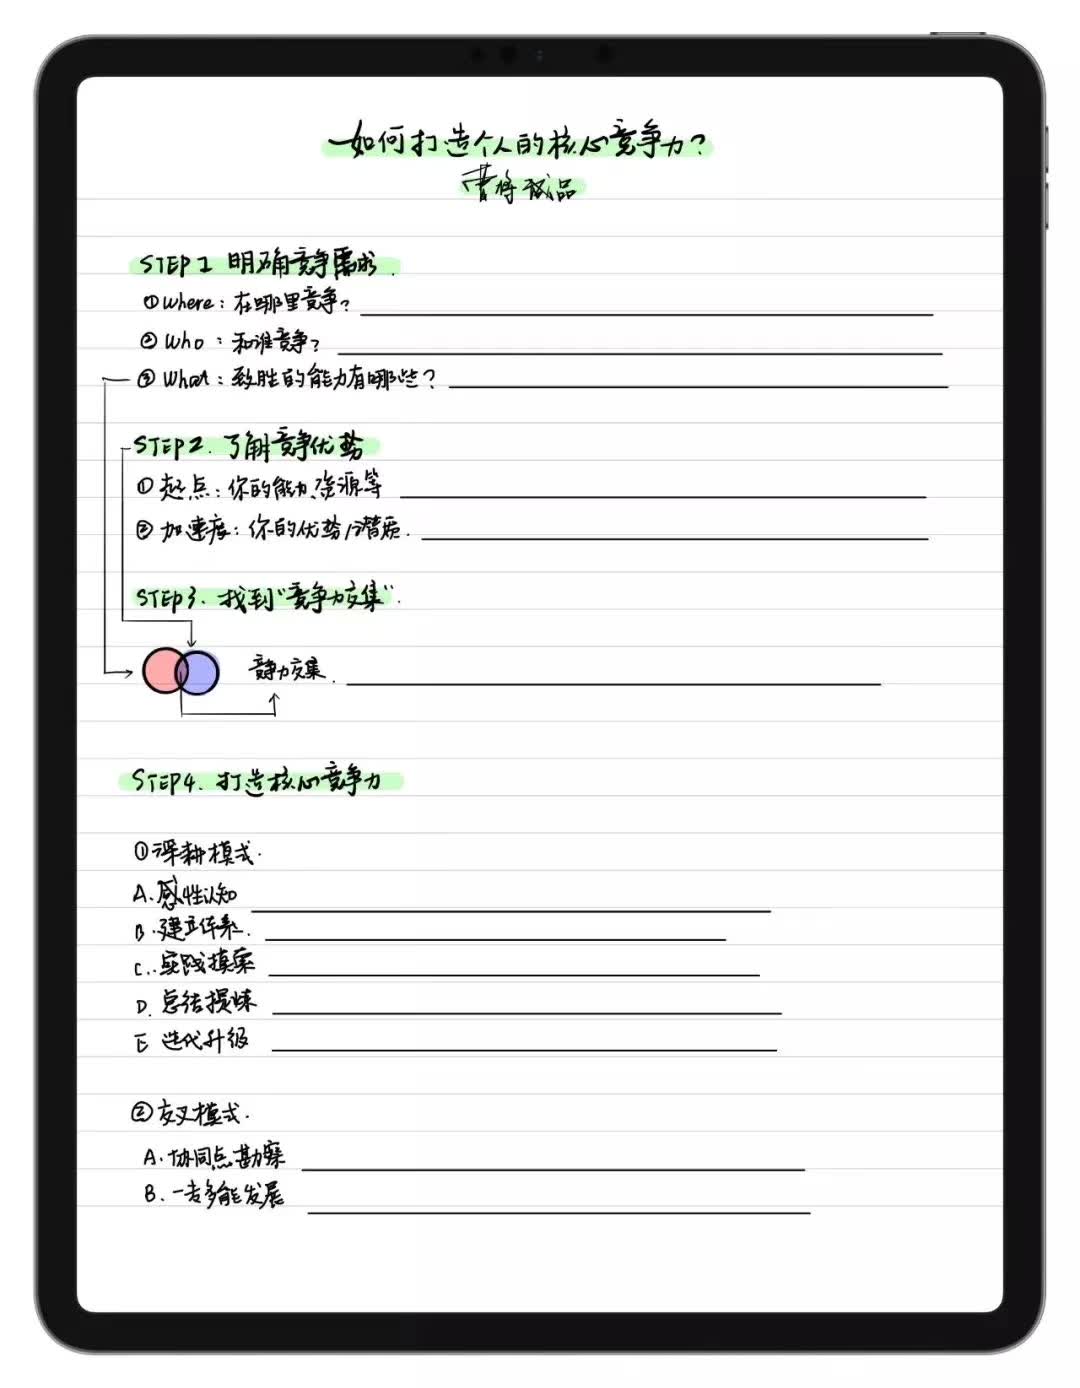 如何打造个人的核心竞争力?
曹将诚品
STEP1 明确竞争需求.
①Where:在哪里竞争?
②Who:和谁竞争?
③What:致胜的能力有哪些?
STEP2.了解竞争优势
①起点:你的能力、资源等
②加速度:你的优势/潜质.
STEP3.找到"竞争力交集".
竞争力交集.
STEP4.打造核心竞争力
①深耕模式.
A.感性认知
B.建立体系.
C..实践摸索
D.总结提炼
E 迭代升级
②交叉模式.
A.协同点勘察
B.一专多能发展